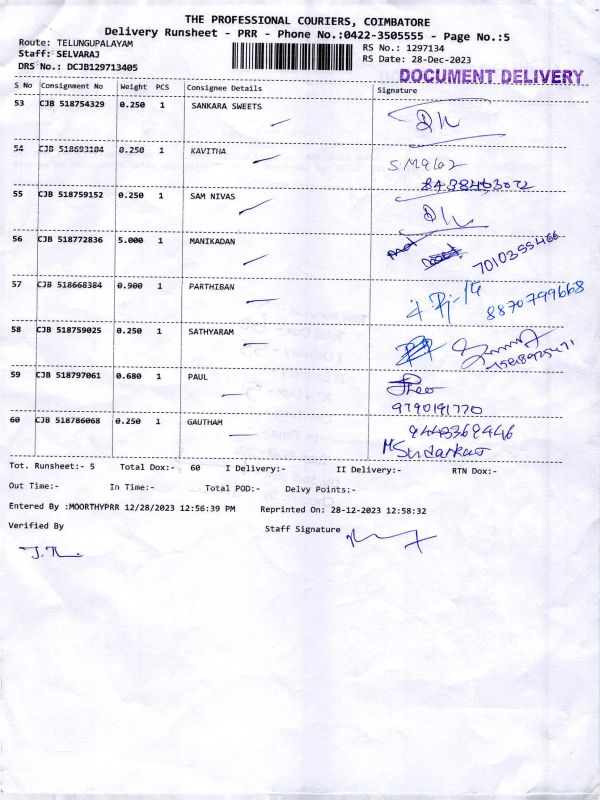 THE PROFESSIONAL COURIERS, COIMBATORE
Delivery Runsheet - PRR - Phone No.:0422-3505555 - Page No.:5
Route: TELUNGUPALAYAM
Staff: SELVARAJ
DRS No.: DCJB129713405
RS No.: 1297134
RS Date: 28-Dec-2023
DOCUMENT DELIVERY
S No Consignment No Weight PCS Consignee Details Signature
53 CJB 518754329 0.250 1 SANKARA SWEETS
54 CJB 518693104 0.250 1 KAVITHA
55 CJB 518759152 0.250 1 SAM NIVAS
56 CJB 518772836 5.000 1 MANIKADAN
7010355466
57 CJB 518668384 0.900 1 PARTHIBAN
8870799668
58 CJB 518759025 0.250 1 SATHYARAM
59 CJB 518797061 0.680 1 PAUL
9790191770
60 CJB 518786068 0.250 1 GAUTHAM
9443369446
Tot. Runsheet:- 5 Total Dox:- 60 I Delivery:- II Delivery:- RTN Dox:-
Out Time:- In Time:- Total POD:- Delvy Points:-
Entered By :MOORTHYPRR 12/28/2023 12:56:39 PM Reprinted On: 28-12-2023 12:58:32
Verified By Staff Signature